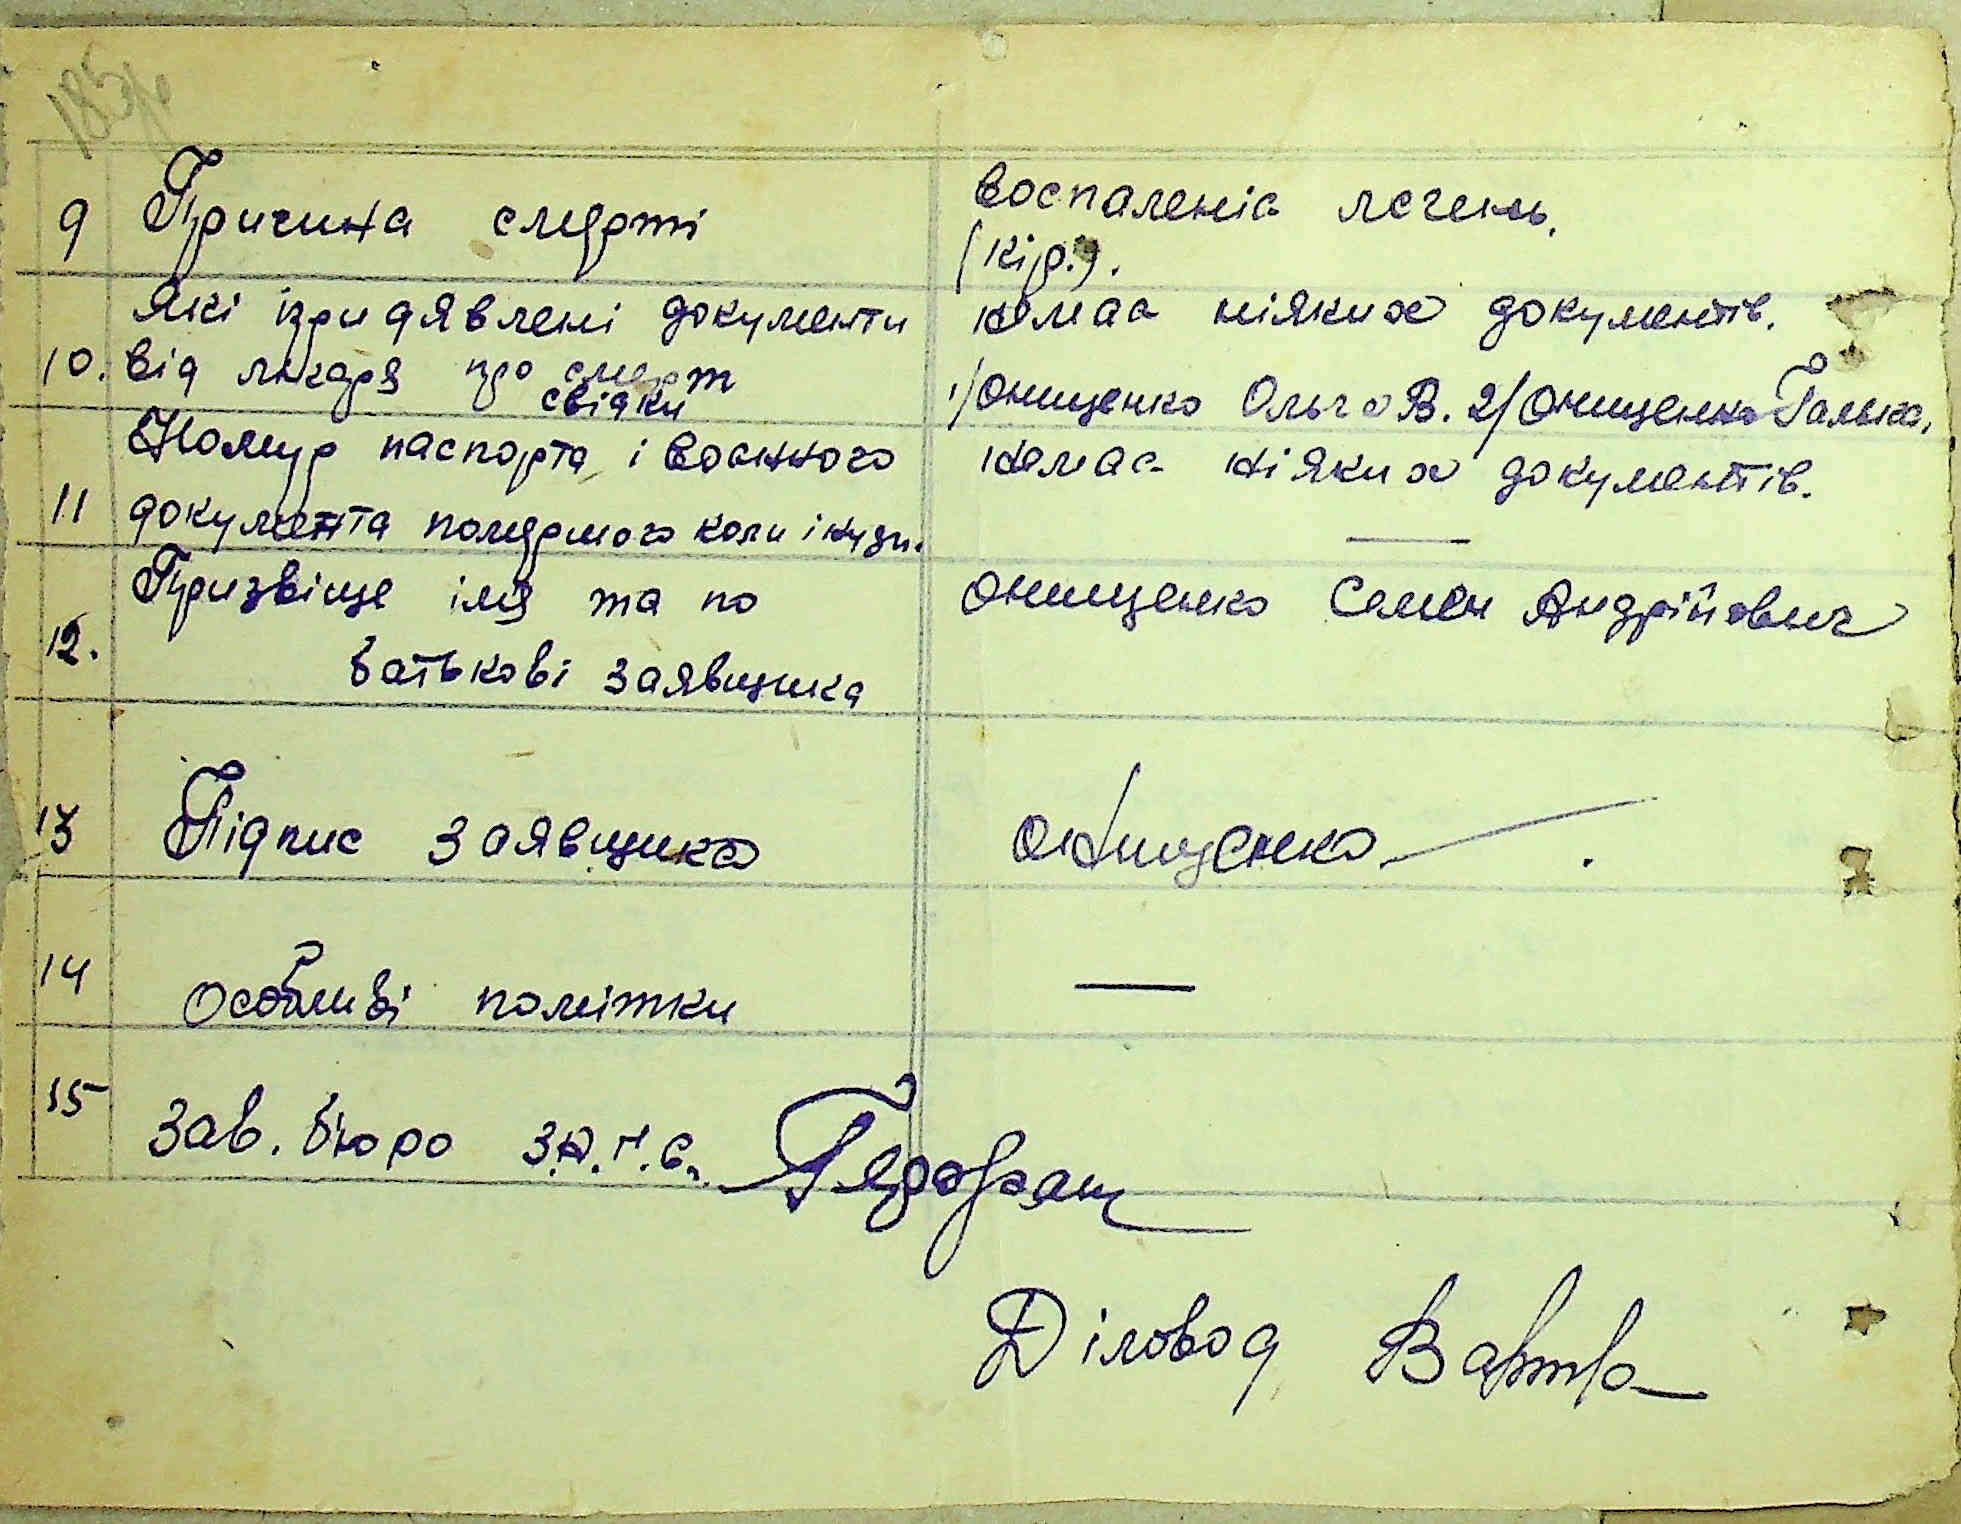 185
9 Причина смерти воспаленіє лёгень.
(кір.).
Які придявлені документи немає ніяких документів.
10. від лікаря про смерт
свідки 1/ Онищенко Ольга В. 2/ Онищенко Галька,
Номур паспорта і воєнного немає ніяких документів.
11 документа померлого коли і куди.
Призвіще імя та по Онищенко Семен Андрійович
12. батькові заявщика
13 Підпис заявщика Онищенко
14 Особливі помітки —
15 Зав. бюро З.А.Г.С.
Діловод